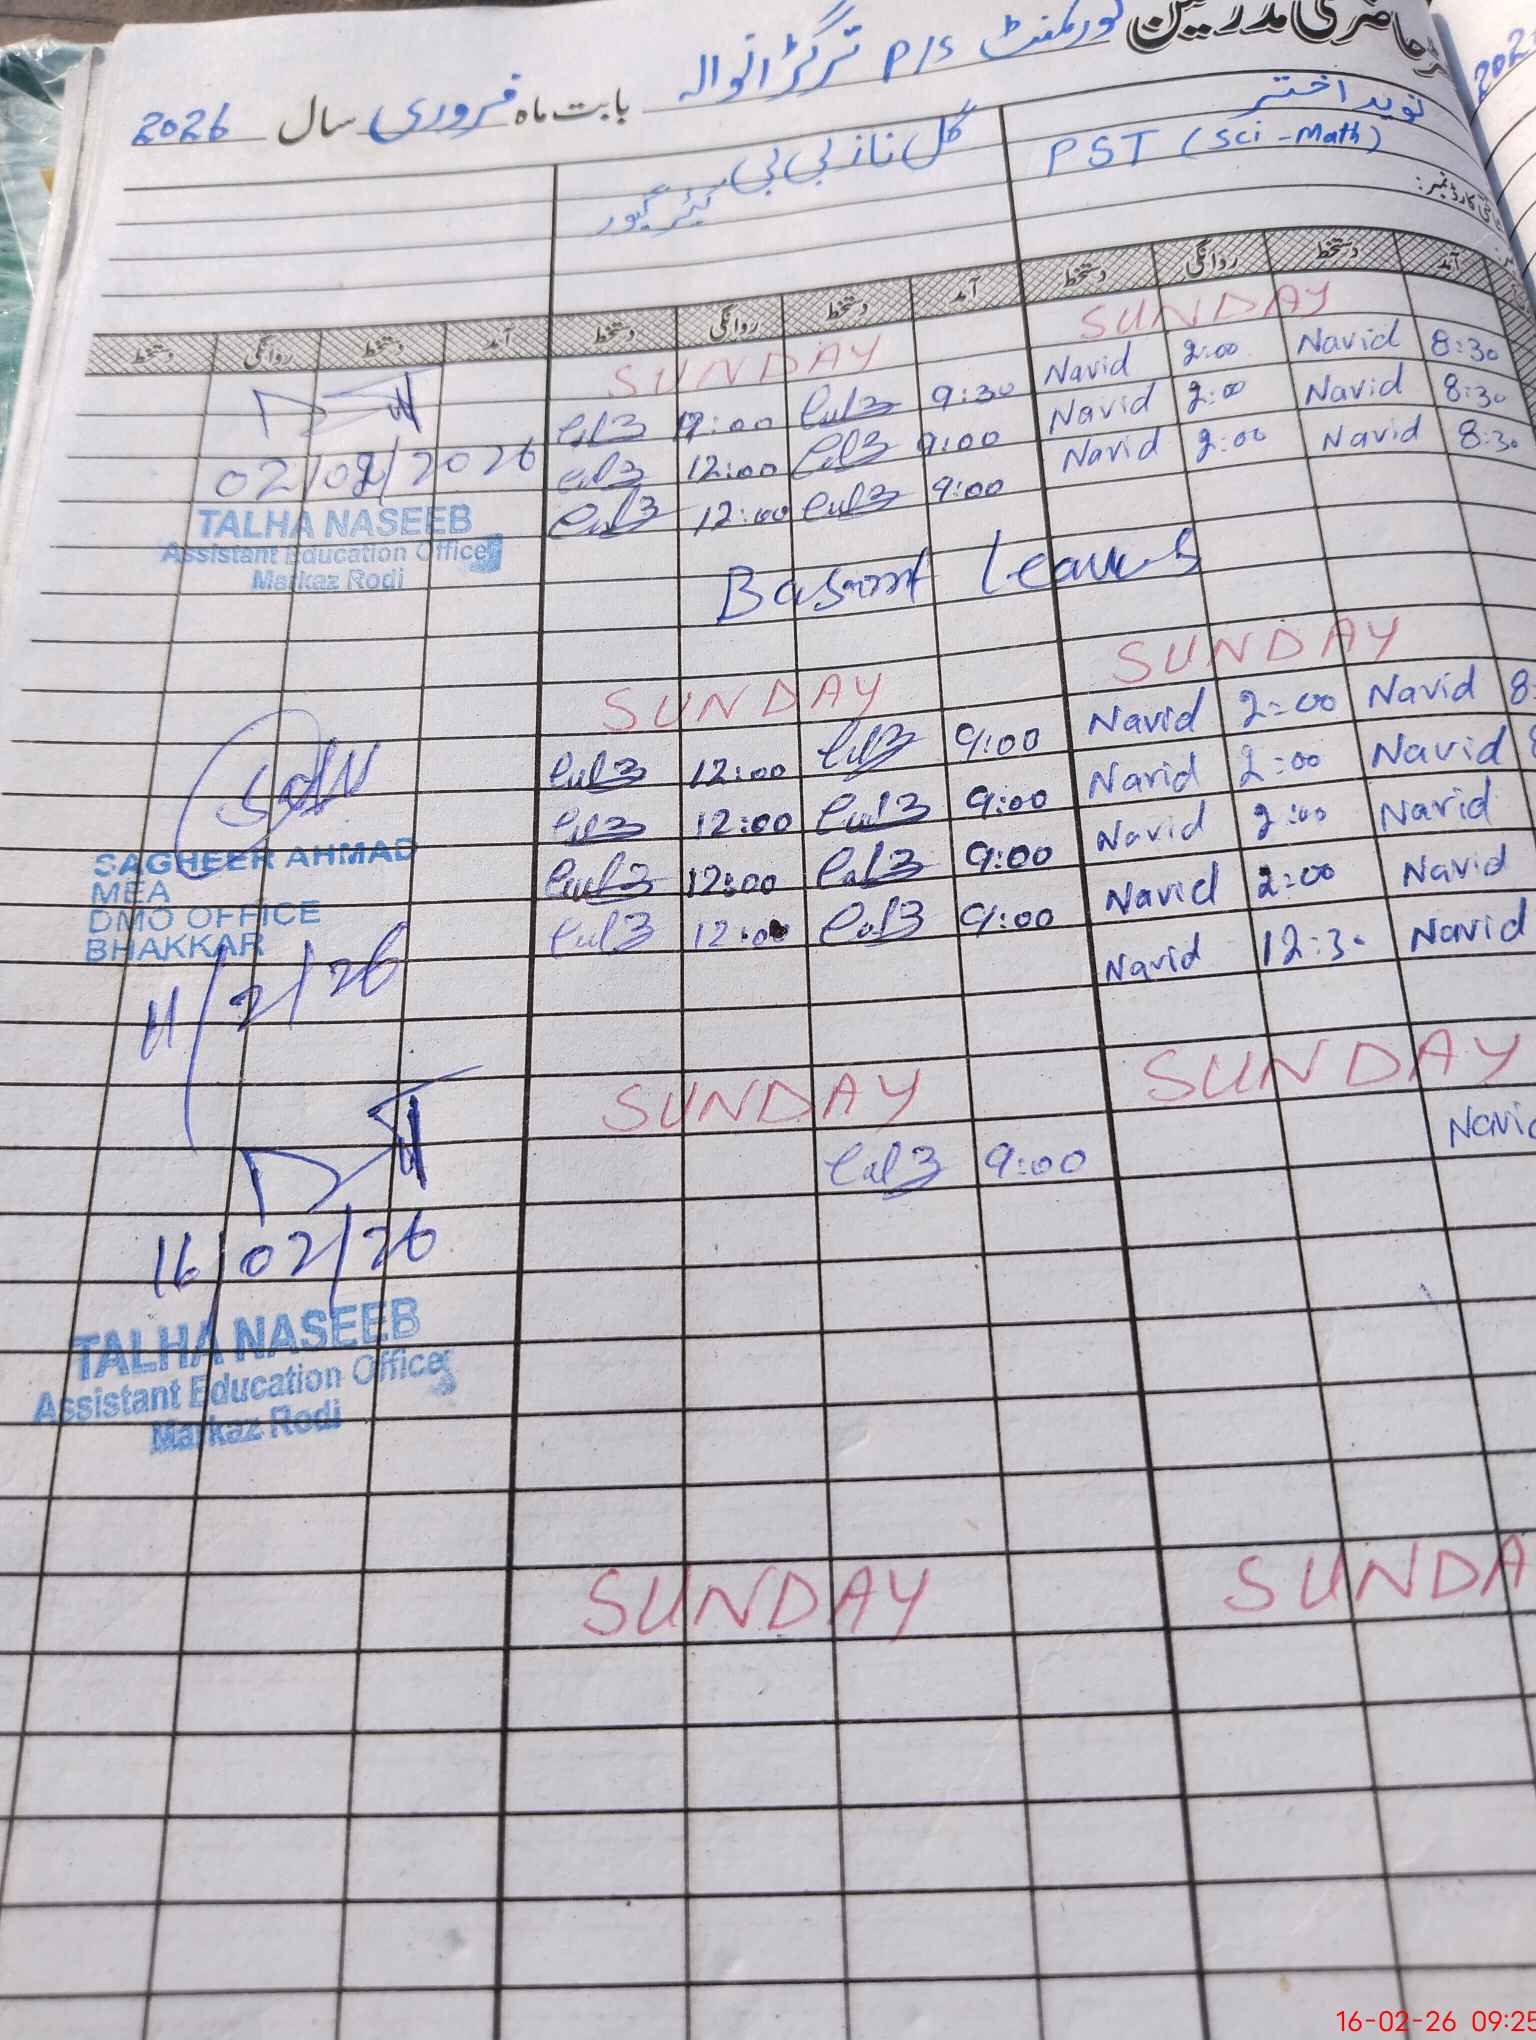 حاضری مدرسین گورنمنٹ P/S ترگڑانوالہ بابت ماہ فروری سال 2026
2026
نوید اختر
PST (Sci-Math)
گل ناز بی بی
کیئر گیور
آمد دستخط روانگی دستخط آمد دستخط روانگی دستخط آمد دستخط روانگی دستخط
SUNDAY SUNDAY
12:00 9:30 Navid 2:00 Navid 8:30
12:00 9:00 Navid 2:00 Navid 8:30
12:00 9:00 Navid 2:00 Navid 8:30
02/02/2026
TALHA NASEEB
Assistant Education Officer
Markaz Rodi
Basant Leaves
SUNDAY SUNDAY
12:00 9:00 Navid 2:00 Navid 8
12:00 9:00 Navid 2:00 Navid 8
12:00 9:00 Navid 2:00 Navid
12:00 9:00 Navid 2:00 Navid
Navid 12:30 Navid
SAGHEER AHMAD
MEA
DMO OFFICE
BHAKKAR
11/2/26
SUNDAY SUNDAY
9:00 Navid
16/02/26
TALHA NASEEB
Assistant Education Officer
Markaz Rodi
SUNDAY SUNDA
16-02-26 09:25